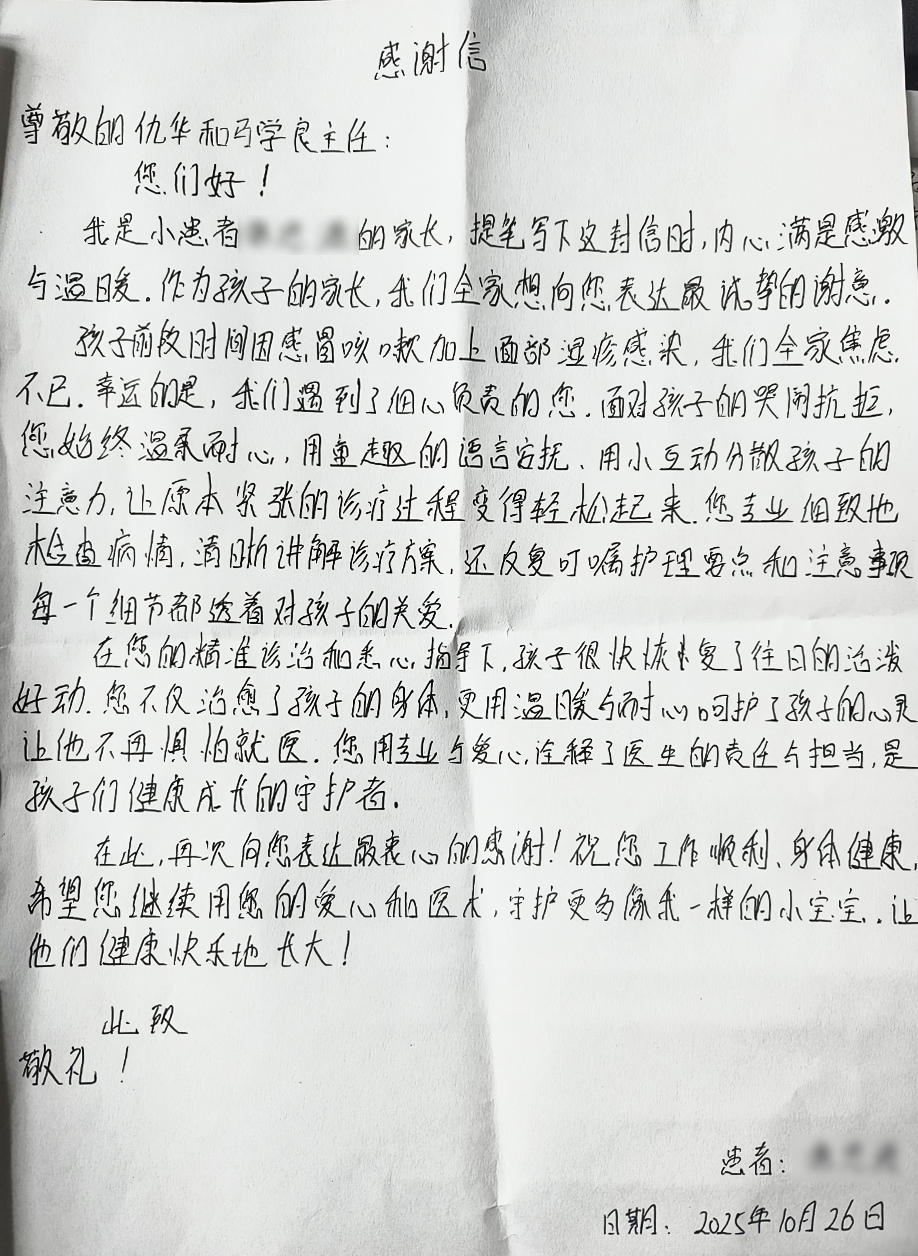 感谢信
尊敬的仇华和马学良主任：
您们好！
我是小患者的家长，提笔写下这封信时，内心满是感激
与温暖.作为孩子的家长，我们全家想向您表达最诚挚的谢意.
孩子前段时间因感冒咳嗽加上面部湿疹感染，我们全家焦虑
不已.幸运的是，我们遇到了细心负责的您.面对孩子的哭闹抗拒，
您始终温柔耐心，用童趣的语言安抚、用小互动分散孩子的
注意力，让原本紧张的诊疗过程变得轻松起来.您专业细致地
检查病情，清晰讲解诊疗方案，还反复叮嘱护理要点和注意事项
每一个细节都透着对孩子的关爱.
在您的精准诊治和悉心指导下，孩子很快恢复了往日的活泼
好动.您不仅治愈了孩子的身体，更用温暖与耐心呵护了孩子的心灵
让他不再惧怕就医.您用专业与爱心，诠释了医生的责任与担当，是
孩子们健康成长的守护者.
在此，再次向您表达最衷心的感谢！祝您工作顺利、身体健康，
希望您继续用您的爱心和医术，守护更多像我一样的小宝宝.让
他们健康快乐地长大！
此致
敬礼！
患者：
日期：2025年10月26日